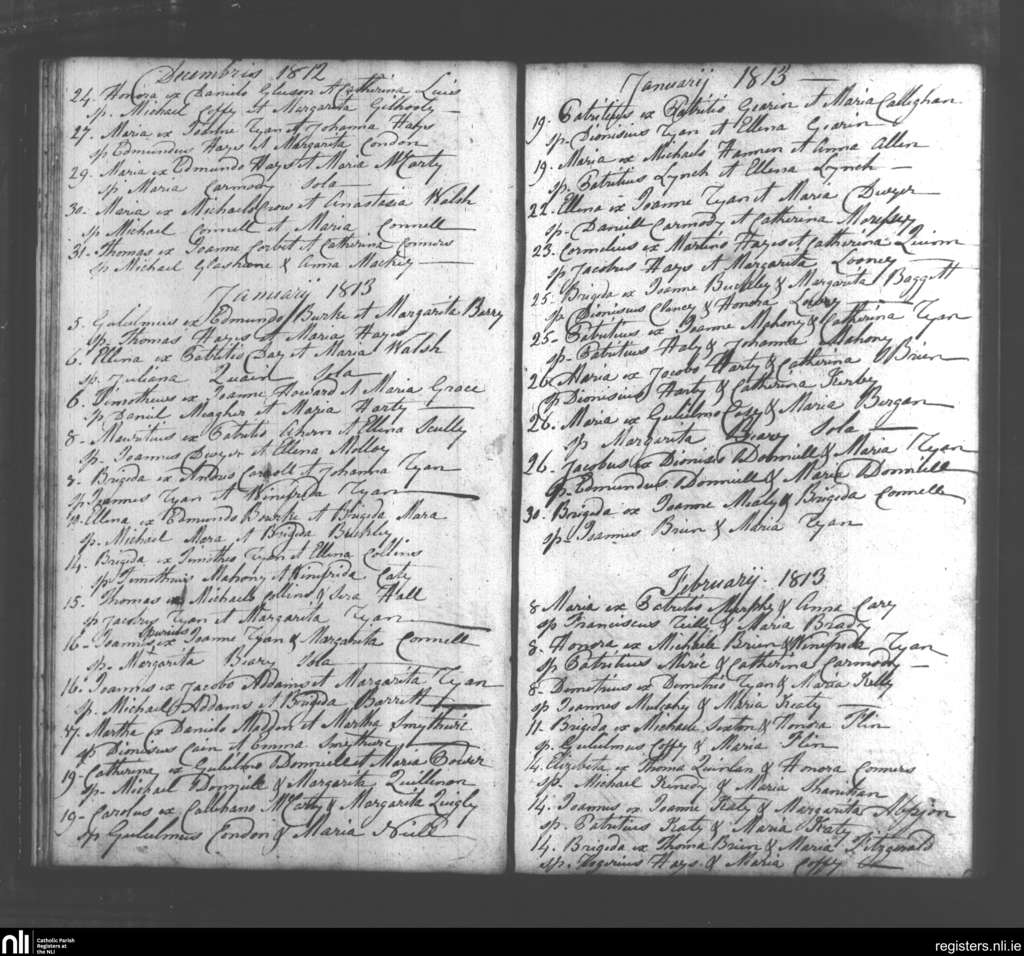 Decembris 1812
24. Honora ex Danielo Gleeson et Catherina Luis
sp. Michael Coffy et Margarita Gilhooly
27. Maria ex Joanne Ryan et Johanna Hays
sp Edmundus Hays et Margarita Condon
29. Maria ex Edmundo Hays et Maria McCarty
sp Maria Carmody Sola
30. Maria ex Michaele Crow et Anastasia Walsh
sp Michael Connell et Maria Connell
31. Thomas ex Joanne Corbet et Catherina Conners
sp Michael Glasheene & Anna Mackey
Januarij 1813
5. Gulielmus ex Edmundo Burke et Margarita Berry
sp. Thomas Hayes et Maria Hayes
6. Ellena ex Patritio Day et Maria Walsh
sp. Juliana Quain Sola
6. Timotheus ex Joanne Howard et Maria Grace
sp Daniel Meagher et Maria Harty
8. Mauritius ex Patritio Ahern et Ellena Scully
sp. Joannes Dwyer et Ellena Molloy
Brigida ex Carroll et Johanna Ryan
sp. Joannes Ryan et Winifrida Ryan
10. Ellena ex Edmundo Bourke et Brigida Mara
sp. Michael Mara et Brigida Buckley
14. Brigida ex Timotheo Ryan et Ellena Collins
sp Timotheus Mahony et Winifrida Caty
15. Thomas ex Michaele Collins & Sera Hall
sp Jacobus Ryan et Margarita Ryan
16. Joannes spurius ex Joanne Ryan & Margarita Connell
sp. Margarita Beary Sola
16. Joannes ex Jacobo Addams et Margarita Ryan
sp. Michael Addams et Brigida Barrett
17. Martha ex Danielo Madden et Martha Smythwic
sp Dionisius Cain et Emma Smythwic
19. Catherina ex Gulielmo Donniell et Maria Bowser
sp. Michael Donniell & Margarita Quillinan
19. Carolus ex Calahano McCarty & Margarita Quigly
sp Gulielmus Condon & Maria Niell
Januarij 1813
19. Patritius ex Patritio Gearin et Maria Callaghan
sp Dionisius Ryan et Ellena Gearin
19. Maria ex Michaele Hannen et Anna Allen
sp. Patritius Lynch et Ellena Lynch
22. Ellena ex Joanne Ryan et Maria Dwyer
sp. Daniell Carmody et Catherina Morphey
23. Cornelius ex Martino Hays et Catherina Quinn
sp Jacobus Hays et Margarita Looney
25. Brigida ex Joanne Buckley & Margarita Baggett
sp Dionisius Clancy & Honora Lowry
25. Patritius ex Joanne Mahony & Catherina Ryan
sp. Patritius Haly & Johanna Mahony
26. Maria ex Jacobo Harty & Catherina OBrien
sp Dionisius Harty & Catherina Kerby
26. Maria ex Gulielmo Casy & Maria Bergan
sp Margarita Beary Sola
26. Jacobus ex Dionisio Donniell & Maria Ryan
sp. Edmundus Donniell & Maria Donniell
30. Brigida ex Joanne Mealy & Brigida Connell
sp. Joannes Brien & Maria Ryan
Februarij. 1813
8 Maria ex Patritio Murphy & Anna Cary
sp Franciscus Tully & Maria Brady
8. Honora ex Michaele Brien & Winefrida Ryan
sp Patritius Miric & Catherina Carmody
8. Demetrius ex Demetrio Ryan & Maria Kelly
sp Joannes Mulcahy & Maria Keaty
11. Brigida ex Michaele Sexton & Honora Flin
sp. Gulielmus Coffy & Maria Flin
14. Elizabeta ex Thoma Quinlan & Honora Conners
sp. Michael Kenedy & Maria Shanahan
14. Joannes ex Joanne Keaty & Margarita
sp. Patritius Keaty & Maria Keaty
14. Brigida ex Thoma Brien & Maria Fitzgerald
sp. Rogerius Hays & Maria Coffy
nli
Catholic Parish
Registers at
the NLI
registers.nli.ie